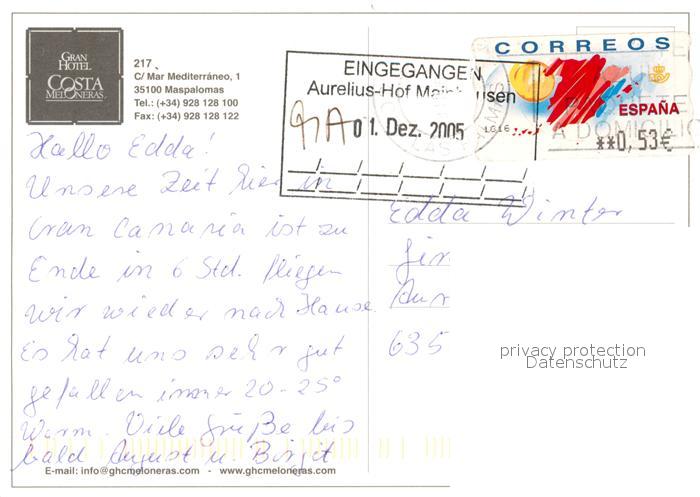 GRAN
HOTEL
COSTA
MELONERAS.
217
C/ Mar Mediterráneo, 1
35100 Maspalomas
Tel.: (+34) 928 128 100
Fax: (+34) 928 128 122
CORREOS
ESPAÑA
**0,53€
A DOMICILIO
EINGEGANGEN
Aurelius-Hof Main usen
01. Dez. 2005
Hallo Edda!
Unsere Zeit hier in
Gran Canaria ist zu
Ende in 6 Std. fliegen
wir wieder nach Hause.
Es hat uns sehr gut
gefallen immer 20-25°
Warm. Viele Grüße bis
bald August u. Birgit
Edda Winter
635
privacy protection
Datenschutz
E-mail: info@ghcmeloneras.com - www.ghcmeloneras.com